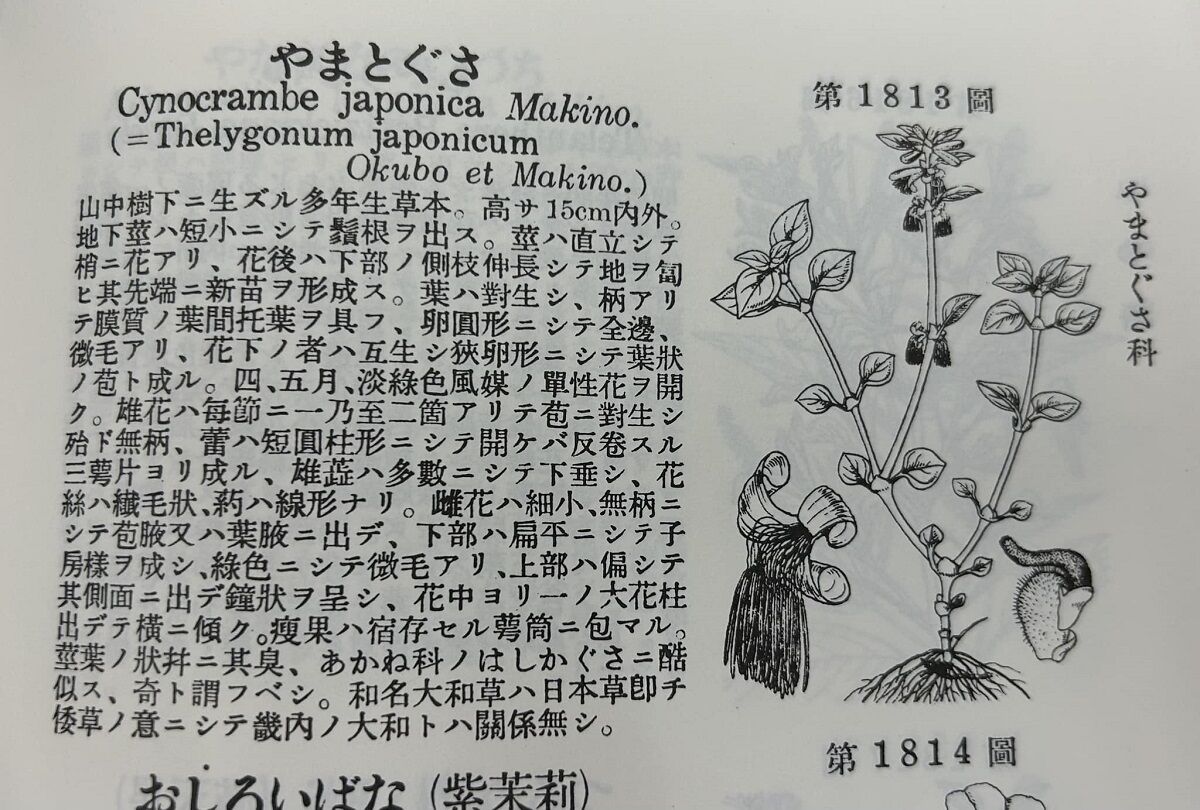 やまとぐさ
Cynocrambe japonica Makino.
(=Thelygonum japonicum
Okubo et Makino.)
山中樹下ニ生ズル多年生草本。高サ15cm內外。
地下莖ハ短小ニシテ鬚根ヲ出ス。莖ハ直立シテ
梢ニ花アリ、花後ハ下部ノ側枝伸長シテ地ヲ匐
ヒ其先端ニ新苗ヲ形成ス。葉ハ對生シ、柄アリ
テ膜質ノ葉間托葉ヲ具フ、卵圓形ニシテ全邊、
微毛アリ、花下ノ者ハ互生シ狹卵形ニシテ葉狀
ノ苞ト成ル。四、五月、淡綠色風媒ノ單性花ヲ開
ク。雄花ハ每節ニ一乃至二箇アリテ苞ニ對生シ
殆ド無柄、蕾ハ短圓柱形ニシテ開ケバ反卷スル
三萼片ヨリ成ル、雄蕋ハ多數ニシテ下垂シ、花
絲ハ纎毛狀、葯ハ線形ナリ。雌花ハ細小、無柄ニ
シテ苞腋又ハ葉腋ニ出デ、下部ハ扁平ニシテ子
房樣ヲ成シ、綠色ニシテ微毛アリ、上部ハ偏シテ
其側面ニ出デ鐘狀ヲ呈シ、花中ヨリ一ノ大花柱
出デテ橫ニ傾ク。瘦果ハ宿存セル萼筒ニ包マル。
莖葉ノ狀幷ニ其臭、あかね科ノはしかぐさニ酷
似ス、奇ト謂フベシ。和名大和草ハ日本草卽チ
倭草ノ意ニシテ畿內ノ大和トハ關係無シ。
おしろいばな(紫茉莉)
第1813圖
やまとぐさ科
第1814圖